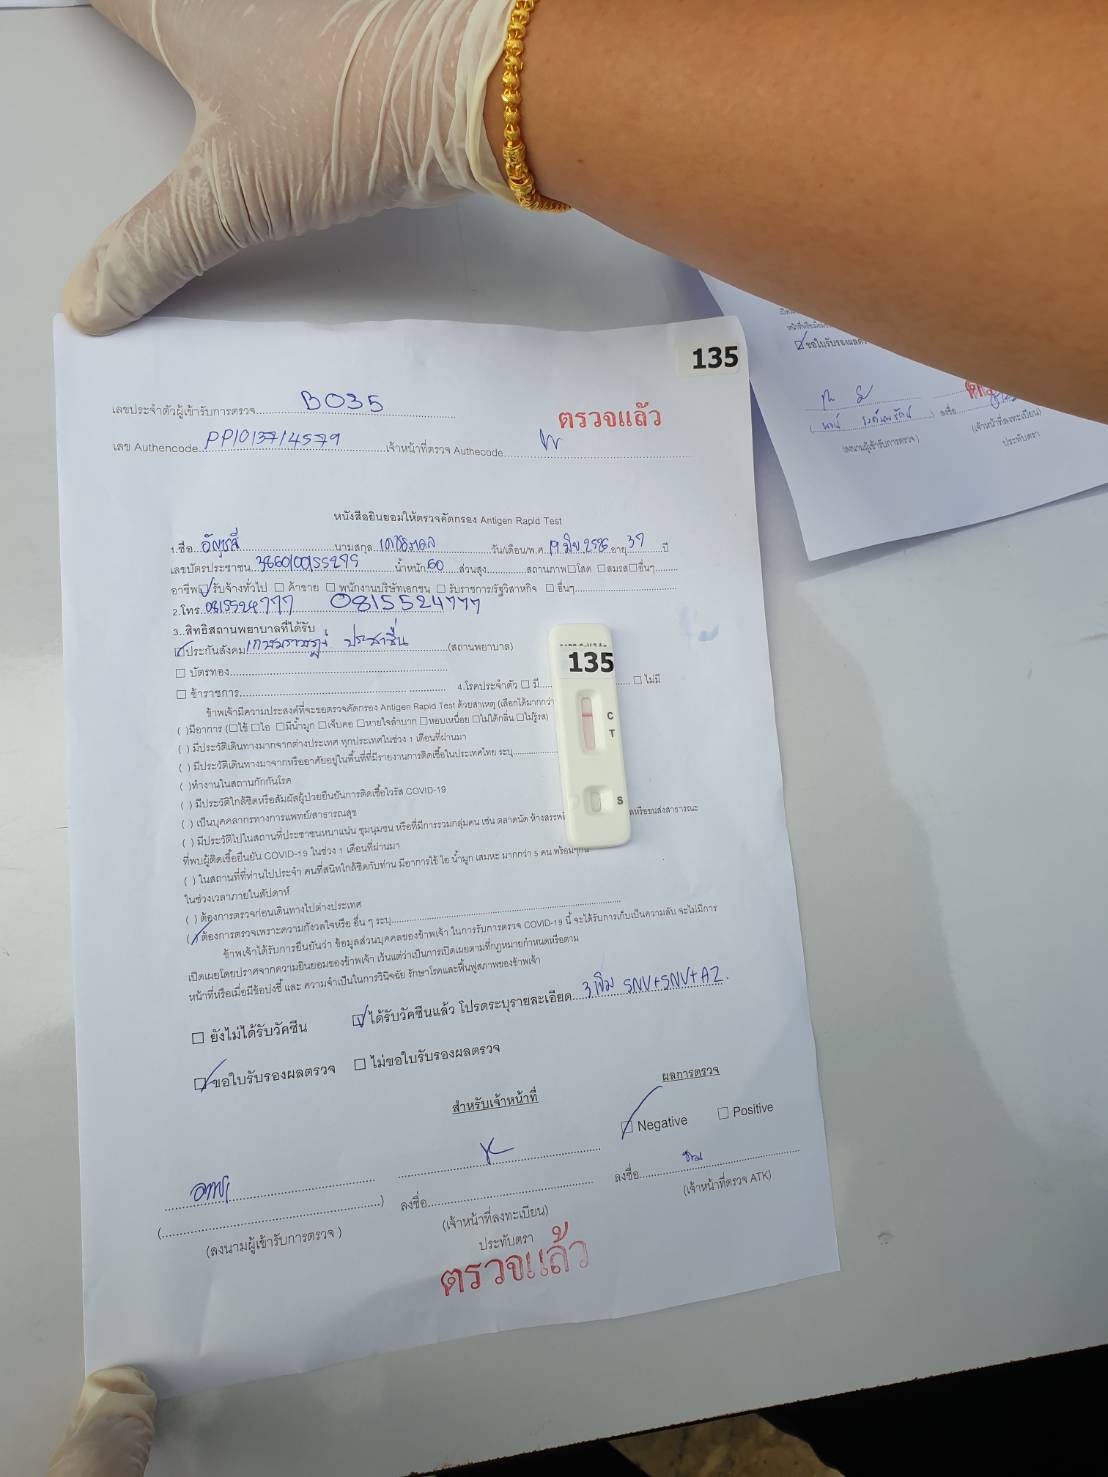 135
เลขประจำตัวผู้เข้ารับการตรวจ B035
ตรวจแล้ว
เลข Authencode PP1013714579 เจ้าหน้าที่ตรวจ Authecode
หนังสือยินยอมให้ตรวจคัดกรอง Antigen Rapid Test
1.ชื่อ อัญชลี นามสกุล วัน/เดือน/พ.ศ. 19 มิ.ย. 2526 อายุ 37 ปี
เลขบัตรประชาชน 3860100155295 น้ำหนัก 60 ส่วนสูง สถานภาพ □โสด □สมรส □อื่นๆ
อาชีพ □รับจ้างทั่วไป □ ค้าขาย □ พนักงานบริษัทเอกชน □ รับราชการรัฐวิสาหกิจ □ อื่นๆ
2.โทร. 0815524777 0815524777
3..สิทธิสถานพยาบาลที่ได้รับ
□ประกันสังคม เกษมราษฎร์ ประชาชื่น (สถานพยาบาล)
□ บัตรทอง
□ ข้าราชการ 4.โรคประจำตัว □ มี □ ไม่มี
ข้าพเจ้ามีความประสงค์ที่จะขอตรวจคัดกรอง Antigen Rapid Test ด้วยสาเหตุ (เลือกได้มากกว่า
( )มีอาการ (□ไข้ □ไอ □มีน้ำมูก □เจ็บคอ □หายใจลำบาก □หอบเหนื่อย □ไม่ได้กลิ่น □ไม่รู้รส)
( ) มีประวัติเดินทางมาจากต่างประเทศ ทุกประเทศในช่วง 1 เดือนที่ผ่านมา
( ) มีประวัติเดินทางมาจากหรืออาศัยอยู่ในพื้นที่ที่มีรายงานการติดเชื้อในประเทศไทย ระบุ
( )ทำงานในสถานกักกันโรค
( ) มีประวัติใกล้ชิดหรือสัมผัสผู้ป่วยยืนยันการติดเชื้อไวรัส COVID-19
( ) เป็นบุคคลากรทางการแพทย์/สาธารณสุข
( ) มีประวัติไปในสถานที่ประชาชนหนาแน่น ชุมนุมชน หรือที่มีการรวมกลุ่มคน เช่น ตลาดนัด ห้างสรรพ ลหรือขนส่งสาธารณะ
ที่พบผู้ติดเชื้อยืนยัน COVID-19 ในช่วง 1 เดือนที่ผ่านมา
( ) ในสถานที่ที่ท่านไปประจำ คนที่สนิทใกล้ชิดกับท่าน มีอาการไข้ ไอ น้ำมูก เสมหะ มากกว่า 5 คน พร้อมๆกัน
ในช่วงเวลาภายในสัปดาห์
( ) ต้องการตรวจก่อนเดินทางไปต่างประเทศ
( ) ต้องการตรวจเพราะความกังวลใจหรือ อื่น ๆ ระบุ
ข้าพเจ้าได้รับการยืนยันว่า ข้อมูลส่วนบุคคลของข้าพเจ้า ในการรับการตรวจ COVID-19 นี้ จะได้รับการเก็บเป็นความลับ จะไม่มีการ
เปิดเผยโดยปราศจากความยินยอมของข้าพเจ้า เว้นแต่ว่าเป็นการเปิดเผยตามที่กฎหมายกำหนดหรือตาม
หน้าที่หรือเมื่อมีข้อบ่งชี้ และ ความจำเป็นในการวินิจฉัย รักษาโรคและฟื้นฟูสภาพของข้าพเจ้า
□ ยังไม่ได้รับวัคซีน □ ได้รับวัคซีนแล้ว โปรดระบุรายละเอียด 3 เข็ม SNV+SNV+AZ.
□ ขอใบรับรองผลตรวจ □ ไม่ขอใบรับรองผลตรวจ
สำหรับเจ้าหน้าที่ ผลการตรวจ
□ Negative □ Positive
( ) ลงชื่อ ลงชื่อ
(ลงนามผู้เข้ารับการตรวจ ) (เจ้าหน้าที่ลงทะเบียน) (เจ้าหน้าที่ตรวจ ATK)
ประทับตรา
ตรวจแล้ว
135
C
T
S
ขอใบรับรองผลต
ลงชื่อ
(ลงนามผู้เข้ารับการตรวจ ) (เจ้าหน้าที่ลงทะเบียน)
ประทับตรา